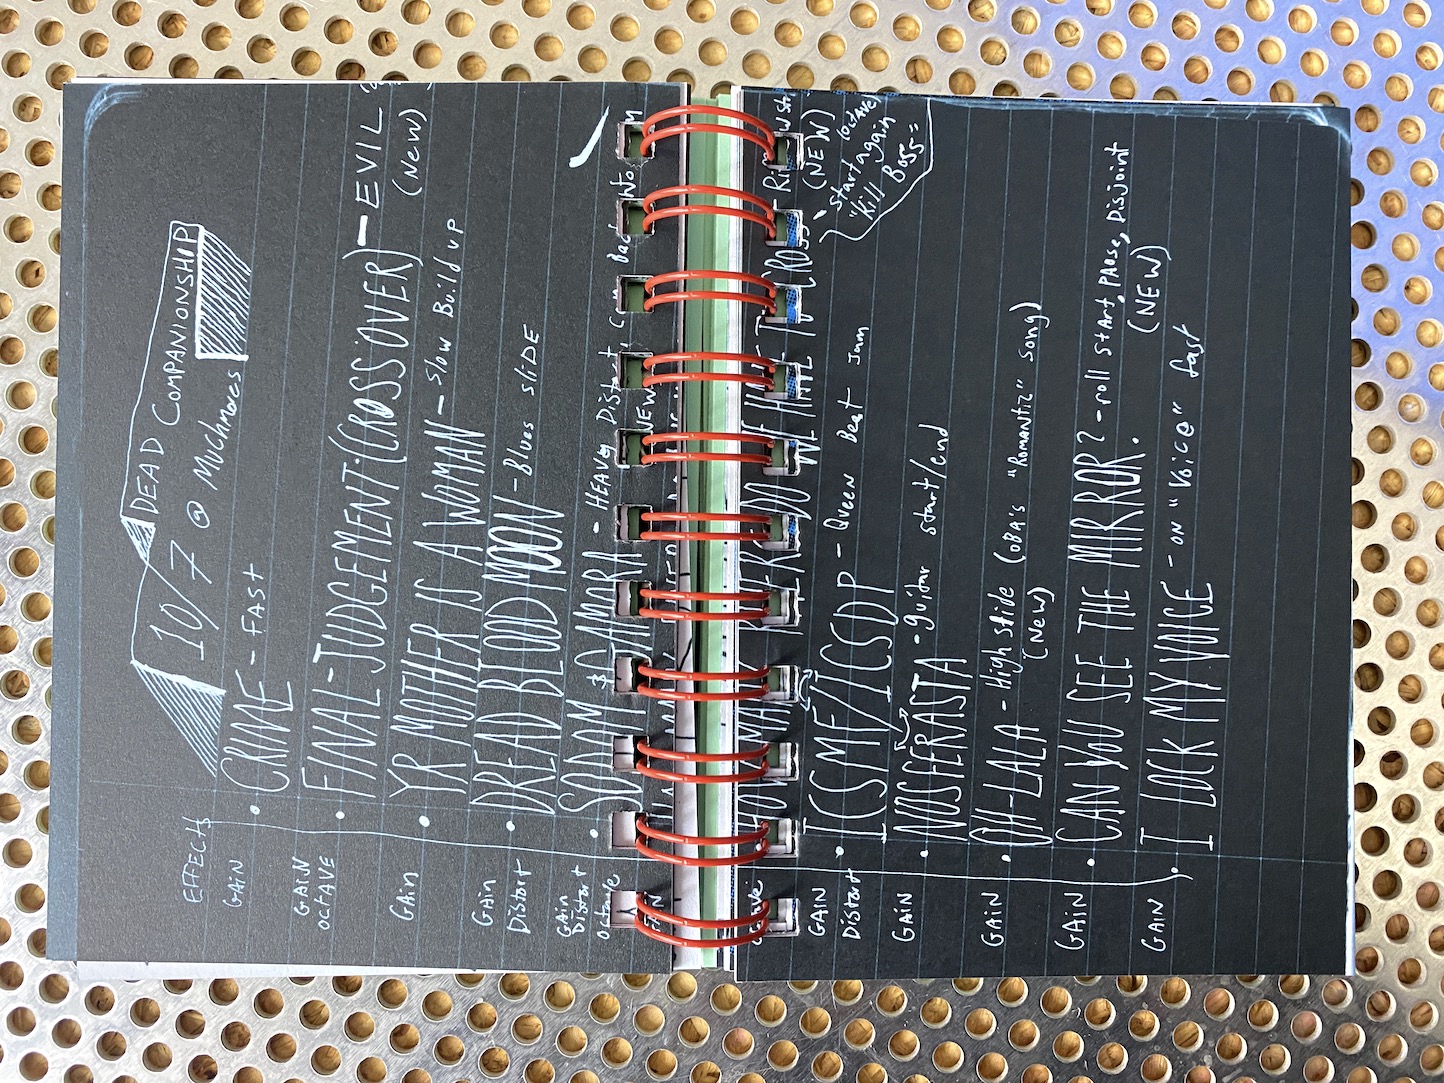 DEAD COMPANIONSHIP
10/7 @ Muchmores
EFFECTS
GAIN
CRIME - FAST
GAIN
OCTAVE
FINAL-JUDGEMENT·(CROSSOVER) - EVIL
(New)
GAIN
YR MOTHER IS A WOMAN - slow Build up
GAIN
Distort
DREAD BLOOD MOON - Blues sliDE
GAIN
Distort
octave
SODAM & GAMARA - HEAVy Distort,
NEW
GAIN
(NEW)
(octave)
"start again
"Kill Boss"
GAIN
Distort
ICSMF/ICSDP - Queen Beat Jam
GAIN
NOSFERASTA - guitar start/end
GAIN
OH-LALA - High slide (OBA's "ROMANTIZ" song)
(New)
GAIN
CAN YOU SEE THE MIRROR? - roll start, PAUse, Disjoint
(NEW)
GAIN
I LOCK MY VOICE - on "Voice" fast